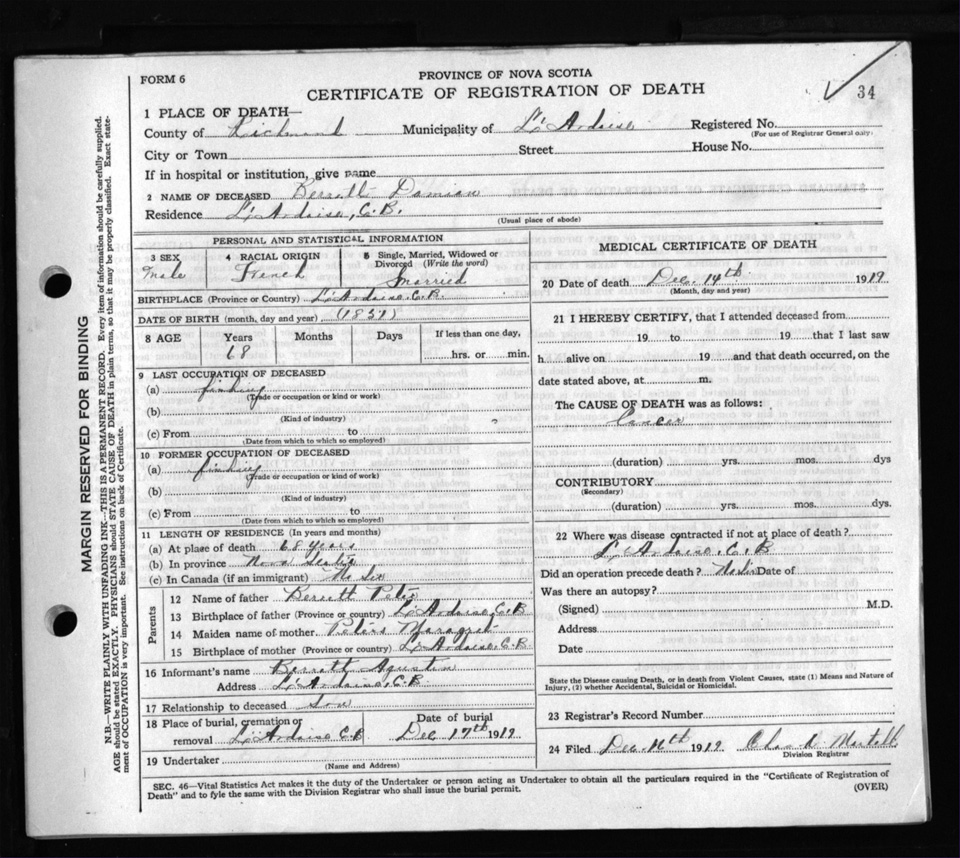 FORM 6
PROVINCE OF NOVA SCOTIA
CERTIFICATE OF REGISTRATION OF DEATH
34
1 PLACE OF DEATH—
County of Richmond Municipality of L'Ardoise Registered No.
(For use of Registrar General only)
City or Town Street House No.
If in hospital or institution, give name
2 NAME OF DECEASED Berrett Damian
Residence L'Ardoise, C.B.
(Usual place of abode)
PERSONAL AND STATISTICAL INFORMATION
3 SEX Male
4 RACIAL ORIGIN French
5 Single, Married, Widowed or Divorced (Write the word) Married
BIRTHPLACE (Province or Country) L'Ardoise, C.B.
DATE OF BIRTH (month, day and year) (1851)
8 AGE Years Months Days If less than one day,
68 hrs. or min.
9 LAST OCCUPATION OF DECEASED
(a)
(Trade or occupation or kind or work)
(b)
(Kind of industry)
(c) From to
(Date from which to which so employed)
10 FORMER OCCUPATION OF DECEASED
(a)
(Trade or occupation or kind or work)
(b)
(Kind of industry)
(c) From to
(Date from which to which so employed)
11 LENGTH OF RESIDENCE (In years and months)
(a) At place of death 68 years
(b) In province Nova Scotia
(c) In Canada (if an immigrant) No Sir
Parents
12 Name of father Berrett
13 Birthplace of father (Province or country) L'Ardoise, C.B
14 Maiden name of mother
15 Birthplace of mother (Province or country) L'Ardoise, C.B
16 Informant's name Berrett Agustin
Address L'Ardoise, C.B
17 Relationship to deceased Son
18 Place of burial, cremation or removal L'Ardoise C.B Date of burial Dec 17th 1919
19 Undertaker
(Name and Address)
MEDICAL CERTIFICATE OF DEATH
20 Date of death Dec. 14th 1919
(Month, day and year)
21 I HEREBY CERTIFY, that I attended deceased from
19 to 19 , that I last saw
h alive on 19 and that death occurred, on the
date stated above, at m.
The CAUSE OF DEATH was as follows:
Cancer
(duration) yrs. mos. dys
CONTRIBUTORY
(Secondary)
(duration) yrs. mos. dys.
22 Where was disease contracted if not at place of death?
L'Ardoise, C.B
Did an operation precede death? No Sir Date of
Was there an autopsy?
(Signed) M.D.
Address
Date
State the Disease causing Death, or in death from Violent Causes, state (1) Means and Nature of
Injury, (2) whether Accidental, Suicidal or Homicidal.
23 Registrar's Record Number
24 Filed Dec. 16th 1919 Martell
Division Registrar
SEC. 46—Vital Statistics Act makes it the duty of the Undertaker or person acting as Undertaker to obtain all the particulars required in the "Certificate of Registration of
Death" and to fyle the same with the Division Registrar who shall issue the burial permit.
(OVER)
MARGIN RESERVED FOR BINDING
N.B.—WRITE PLAINLY WITH UNFADING INK—THIS IS A PERMANENT RECORD. Every item of information should be carefully supplied.
AGE should be stated EXACTLY. PHYSICIANS should STATE CAUSE OF DEATH in plain terms, so that it may be properly classified. Exact state-
ment of OCCUPATION is very important. See instructions on back of Certificate.